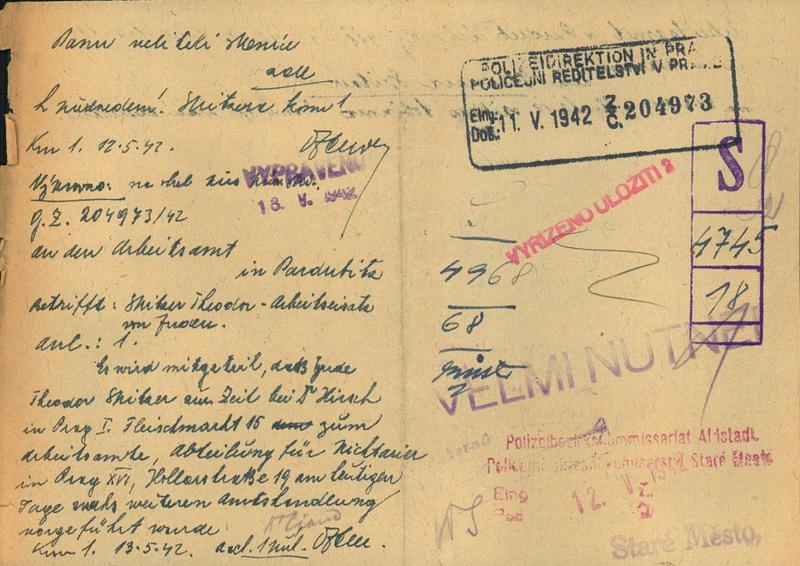 Panu veliteli stanice
zde
K předvedení! Spitzera
Km 1. 12.5.42.
VYPRAVENO
18. V. 1942
G.Z. 204973/42
An den Arbeitsamt
in Pardubitz
Betrifft: Spitzer Theodor - Arbeitseisatz
von Juden.
Anl.: 1.
Es wird mitgeteil, daß Jude
Theodor Spitzer zur Zeit bei Dr Hirsch
in Prag I. Fleischmarkt 15 zum
Arbeitsamte, Abteilung für Nichtarier
in Prag XVI, Hollarstraße 19 am heutigen
Tage zwecks weiteren Amtshandlung
vorgeführt wurde
Km 1. 13.5.42.
POLIZEIDIREKTION IN PRA
POLICEJNÍ ŘEDITELSTVÍ V PRAZE
Eing.
Doš. 11. V. 1942 Z.
Č. 204973
VYŘÍZENO ULOŽITI
S
4745
18
4968
68
VELMI NUTNÉ
Polizeibezirkskommissariat Altstadt.
Policejní okresní komisařství Staré Město
Eing
Pod 12. V. 1942 Z
Č
Staré Město,